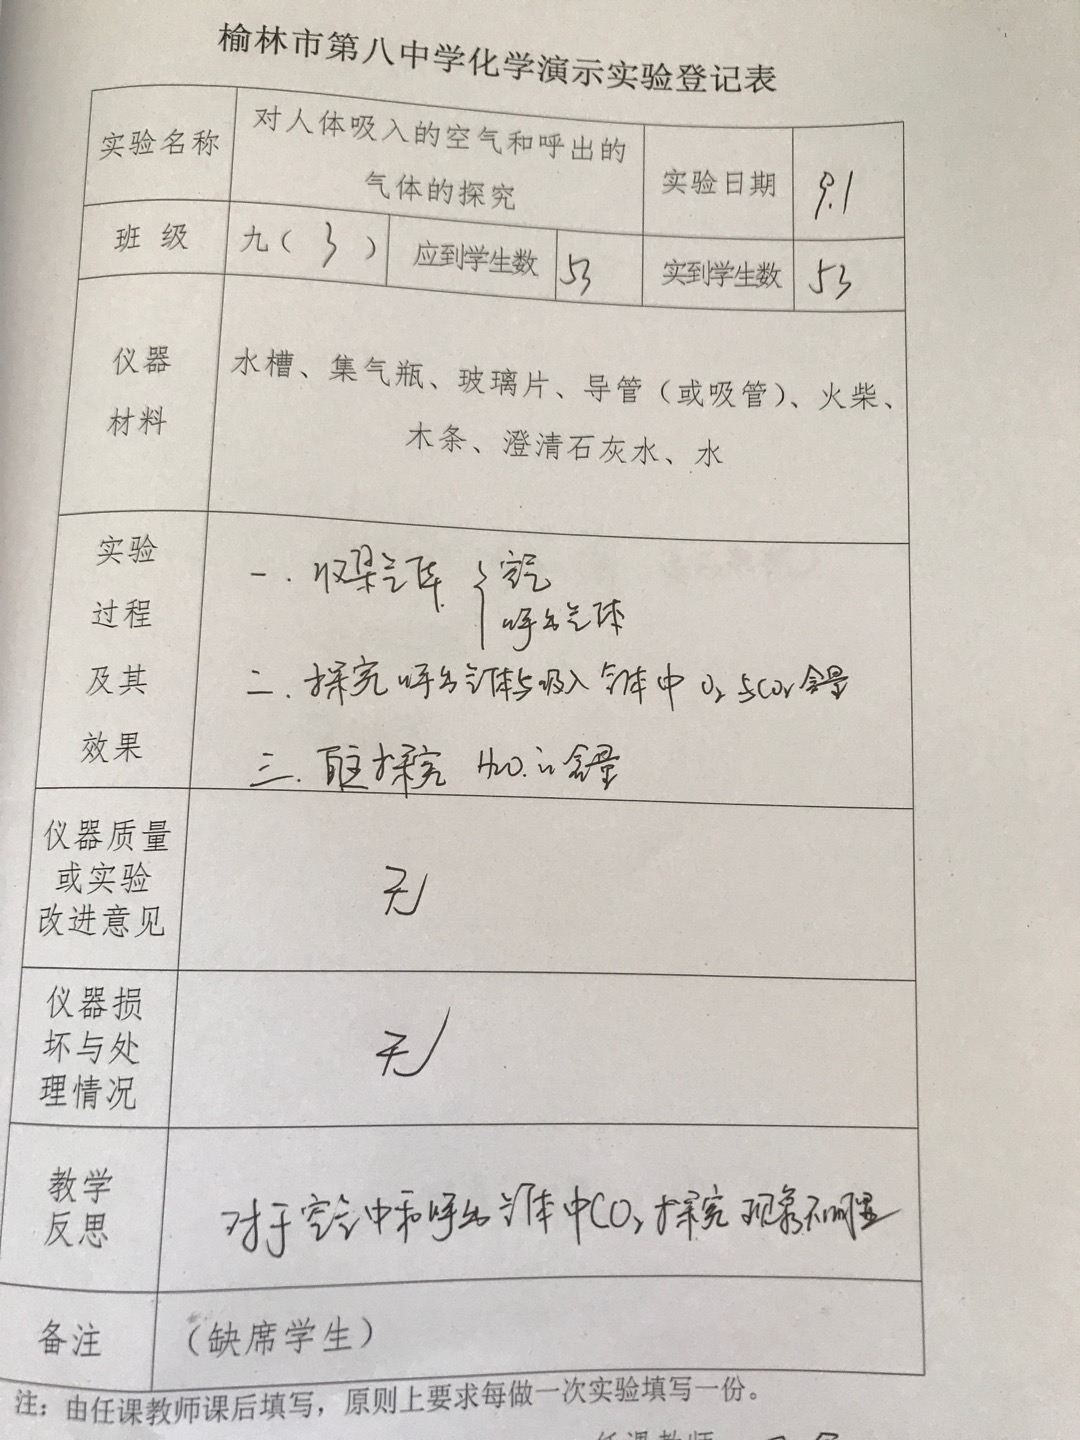 榆林市第八中学化学演示实验登记表
实验名称
对人体吸入的空气和呼出的
气体的探究
实验日期
9.1
班 级
九( 3 )
应到学生数
53
实到学生数
53
仪器
材料
水槽、集气瓶、玻璃片、导管（或吸管）、火柴、
木条、澄清石灰水、水
实验
过程
及其
效果
一. 收集气体 { 空气
呼出气体
二. 探究呼出气体与吸入气体中O₂与CO₂含量
三. 探究 H₂O 含量
仪器质量
或实验
改进意见
无
仪器损
坏与处
理情况
无
教学
反思
对于空气中和呼出气体中CO₂探究现象不明显
备注
（缺席学生）
注：由任课教师课后填写，原则上要求每做一次实验填写一份。
任课教师